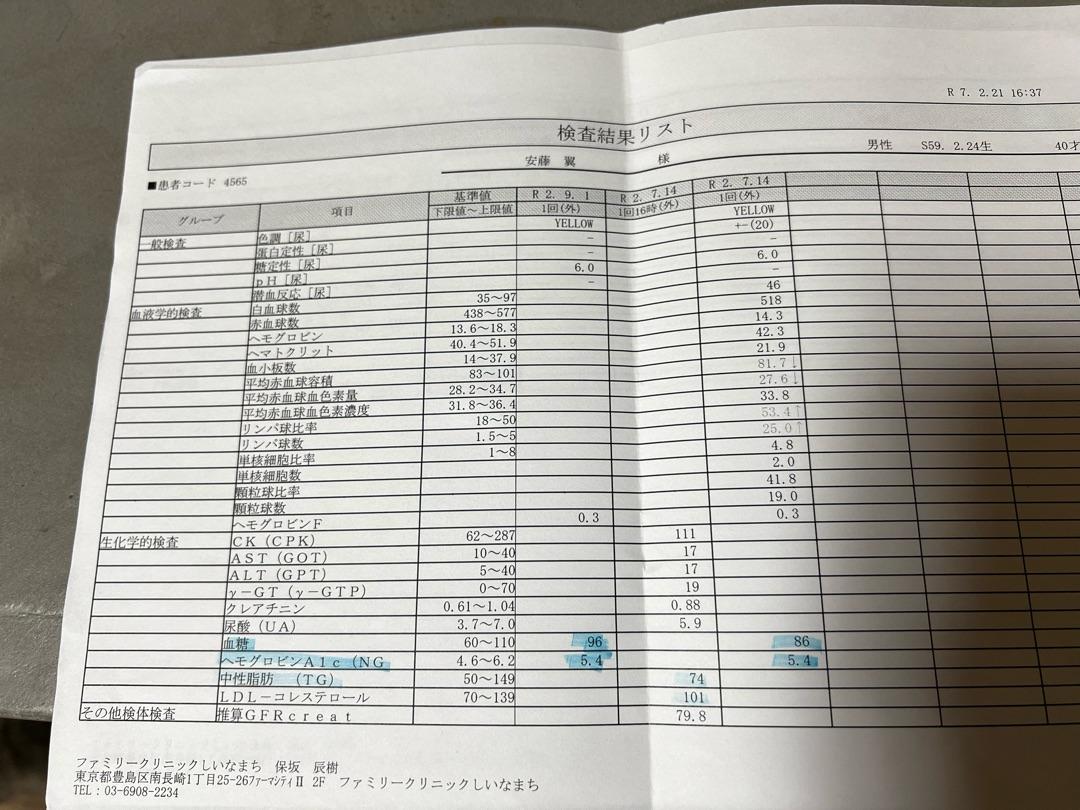 R 7. 2.21 16:37
検査結果リスト
安藤 翼 様 男性 S59. 2.24生 40才
■患者コード 4565
グループ 項目 基準値 下限値～上限値 R 2. 9. 1 1回(外) R 2. 7.14 1回16時(外) R 2. 7.14 1回(外)
一般検査 色調［尿］ YELLOW YELLOW
蛋白定性［尿］ － +-(20)
糖定性［尿］ － －
ｐＨ［尿］ 6.0 6.0
潜血反応［尿］ － －
血液学的検査 白血球数 35～97 46
赤血球数 438～577 518
ヘモグロビン 13.6～18.3 14.3
ヘマトクリット 40.4～51.9 42.3
血小板数 14～37.9 21.9
平均赤血球容積 83～101 81.7↓
平均赤血球血色素量 28.2～34.7 27.6↓
平均赤血球血色素濃度 31.8～36.4 33.8
リンパ球比率 18～50 53.4↑
リンパ球数 1.5～5 25.0↑
単核細胞比率 1～8 4.8
単核細胞数 2.0
顆粒球比率 41.8
顆粒球数 19.0
ヘモグロビンＦ 0.3 0.3
生化学的検査 ＣＫ（ＣＰＫ） 62～287 111
ＡＳＴ（ＧＯＴ） 10～40 17
ＡＬＴ（ＧＰＴ） 5～40 17
γ－ＧＴ（γ－ＧＴＰ） 0～70 19
クレアチニン 0.61～1.04 0.88
尿酸（ＵＡ） 3.7～7.0 5.9
血糖 60～110 96 86
ヘモグロビンＡ１ｃ（ＮＧ 4.6～6.2 5.4 5.4
中性脂肪　（ＴＧ） 50～149 74
ＬＤＬ－コレステロール 70～139 101
その他検体検査 推算ＧＦＲｃｒｅａｔ 79.8
ファミリークリニックしいなまち　保坂　辰樹
東京都豊島区南長崎1丁目25-26ﾌｧｰﾏｼﾃｨⅡ 2F　ファミリークリニックしいなまち
TEL：03-6908-2234